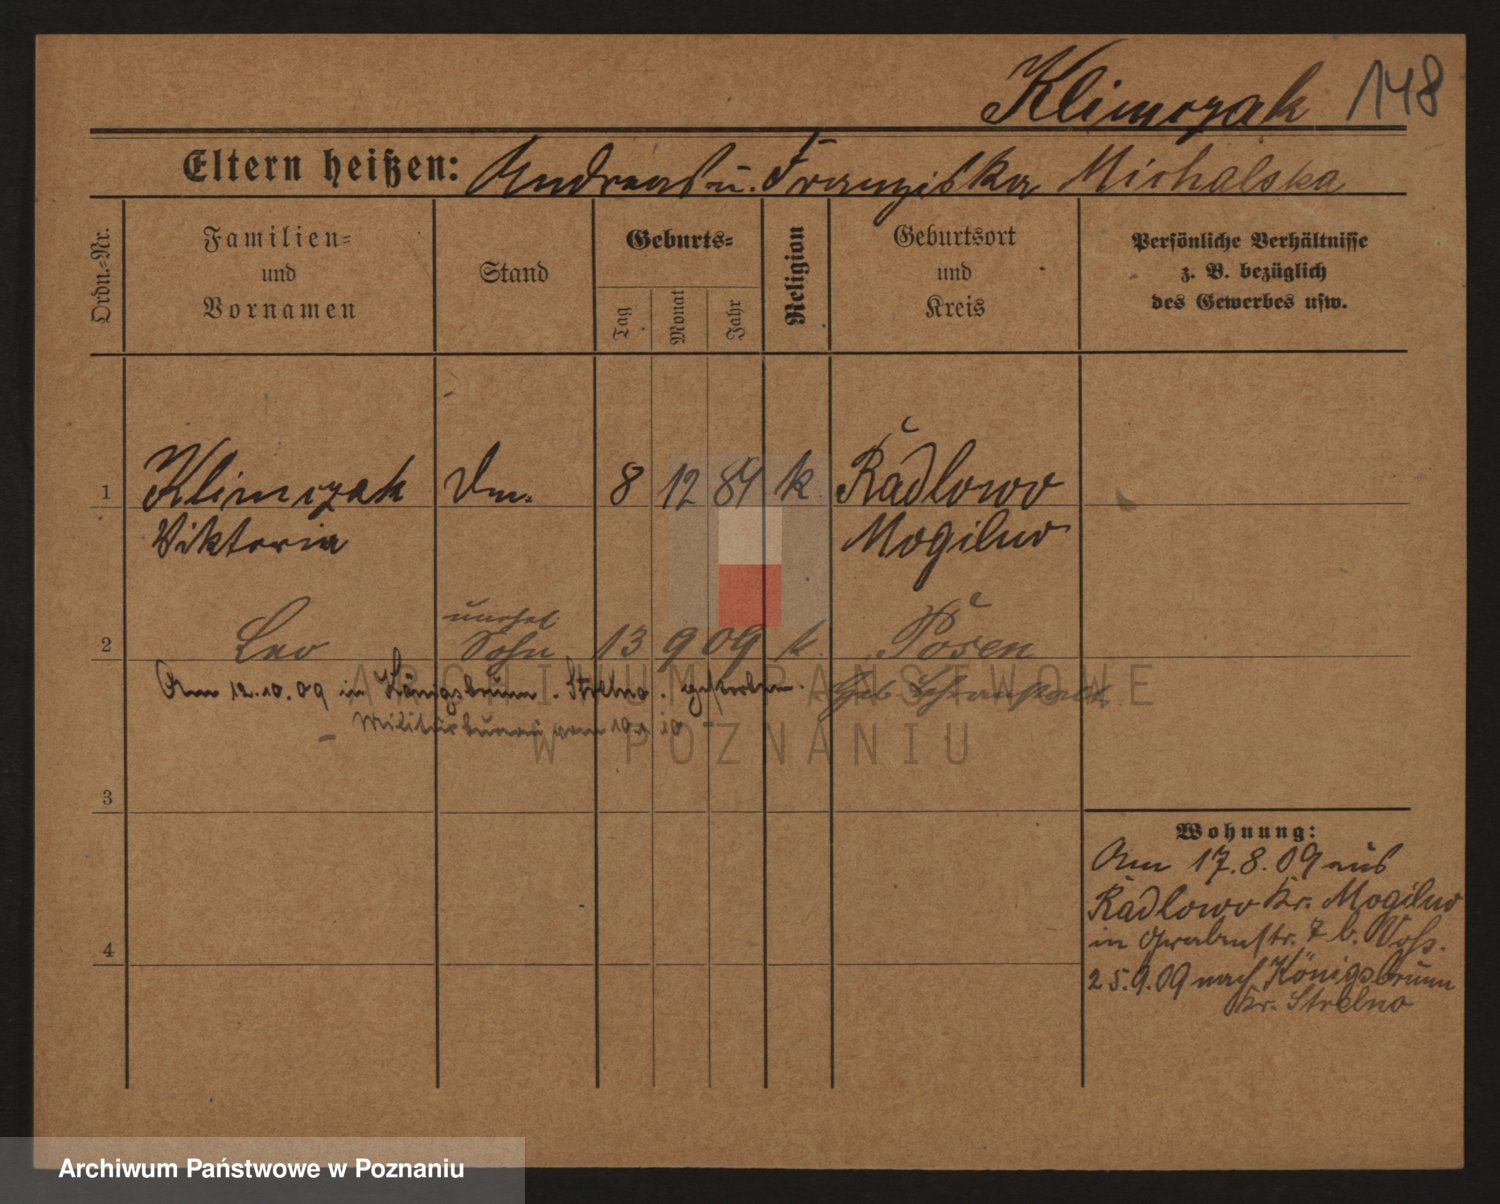 Klimczak 148
Eltern heißen: Andreas u. Franziska Michalska
Ordn.-Nr.
Familien-
und
Vornamen
Stand
Geburts-
Tag
Monat
Jahr
Religion
Geburtsort
und
Kreis
Persönliche Verhältnisse
z. B. bezüglich
des Gewerbes usw.
1 Klimczak 8 12 84 k. Radlowo
Viktoria Mogilno
unehel.
2 Leo Sohn 13 9 09 k. Posen
Am 12.10.09 in Königsbrunn. Strelno. gestorben. Heb. Lehranstalt
Militärbureau vom
3
Wohnung:
Am 17.8.09 aus
Radlowo Kr. Mogilno
4
in Grabenstr. 7 b. Voß.
25.9.09 nach Königsbrunn
Kr. Strelno
ARCHIWUM PAŃSTWOWE
W POZNANIU
Archiwum Państwowe w Poznaniu